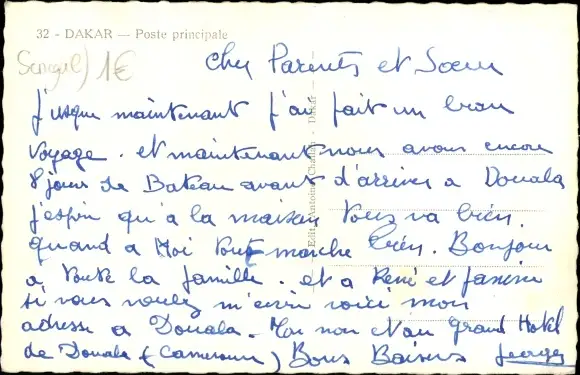 32 - DAKAR — Poste principale
Senegal) 1€
Cher Parents et Soeur
Jusque maintenant j'ai fait un bon
voyage. et maintenant nous avons encore
8 jours de Bateau avant d'arriver a Douala
j'espin qu'a la maison tout va bien.
quand a Moi tout marche bien. Bonjour
a toute la famille. et a René et Janine
si vous voulez m'ecrire voici mon
adresse a Douala. Moi nom et au Grand Hotel
de Douala (Cameroun) Bons Baisers Georges
Edit.
Dakar